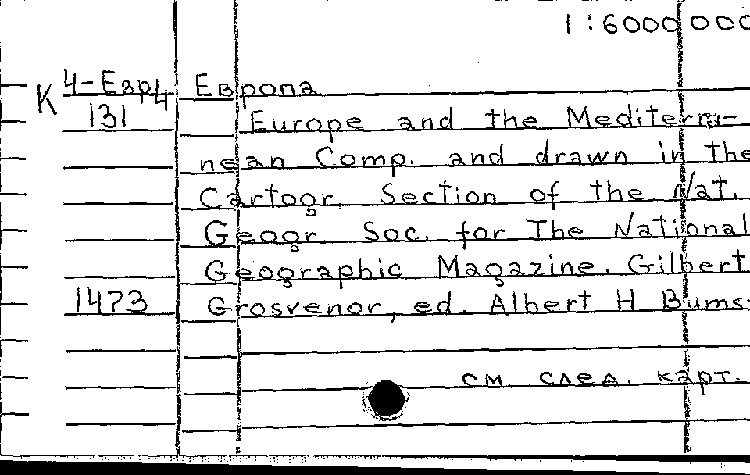 1:6000 000
К 4-Евр4 Европа
131 Europe and the Mediterra-
nean Comp. and drawn in the
Cartogr. Section of the Nat.
Geogr. Soc. for The National
Geographic Magazine. Gilbert
1473 Grosvenor, ed. Albert H Bums
см. след. карт.